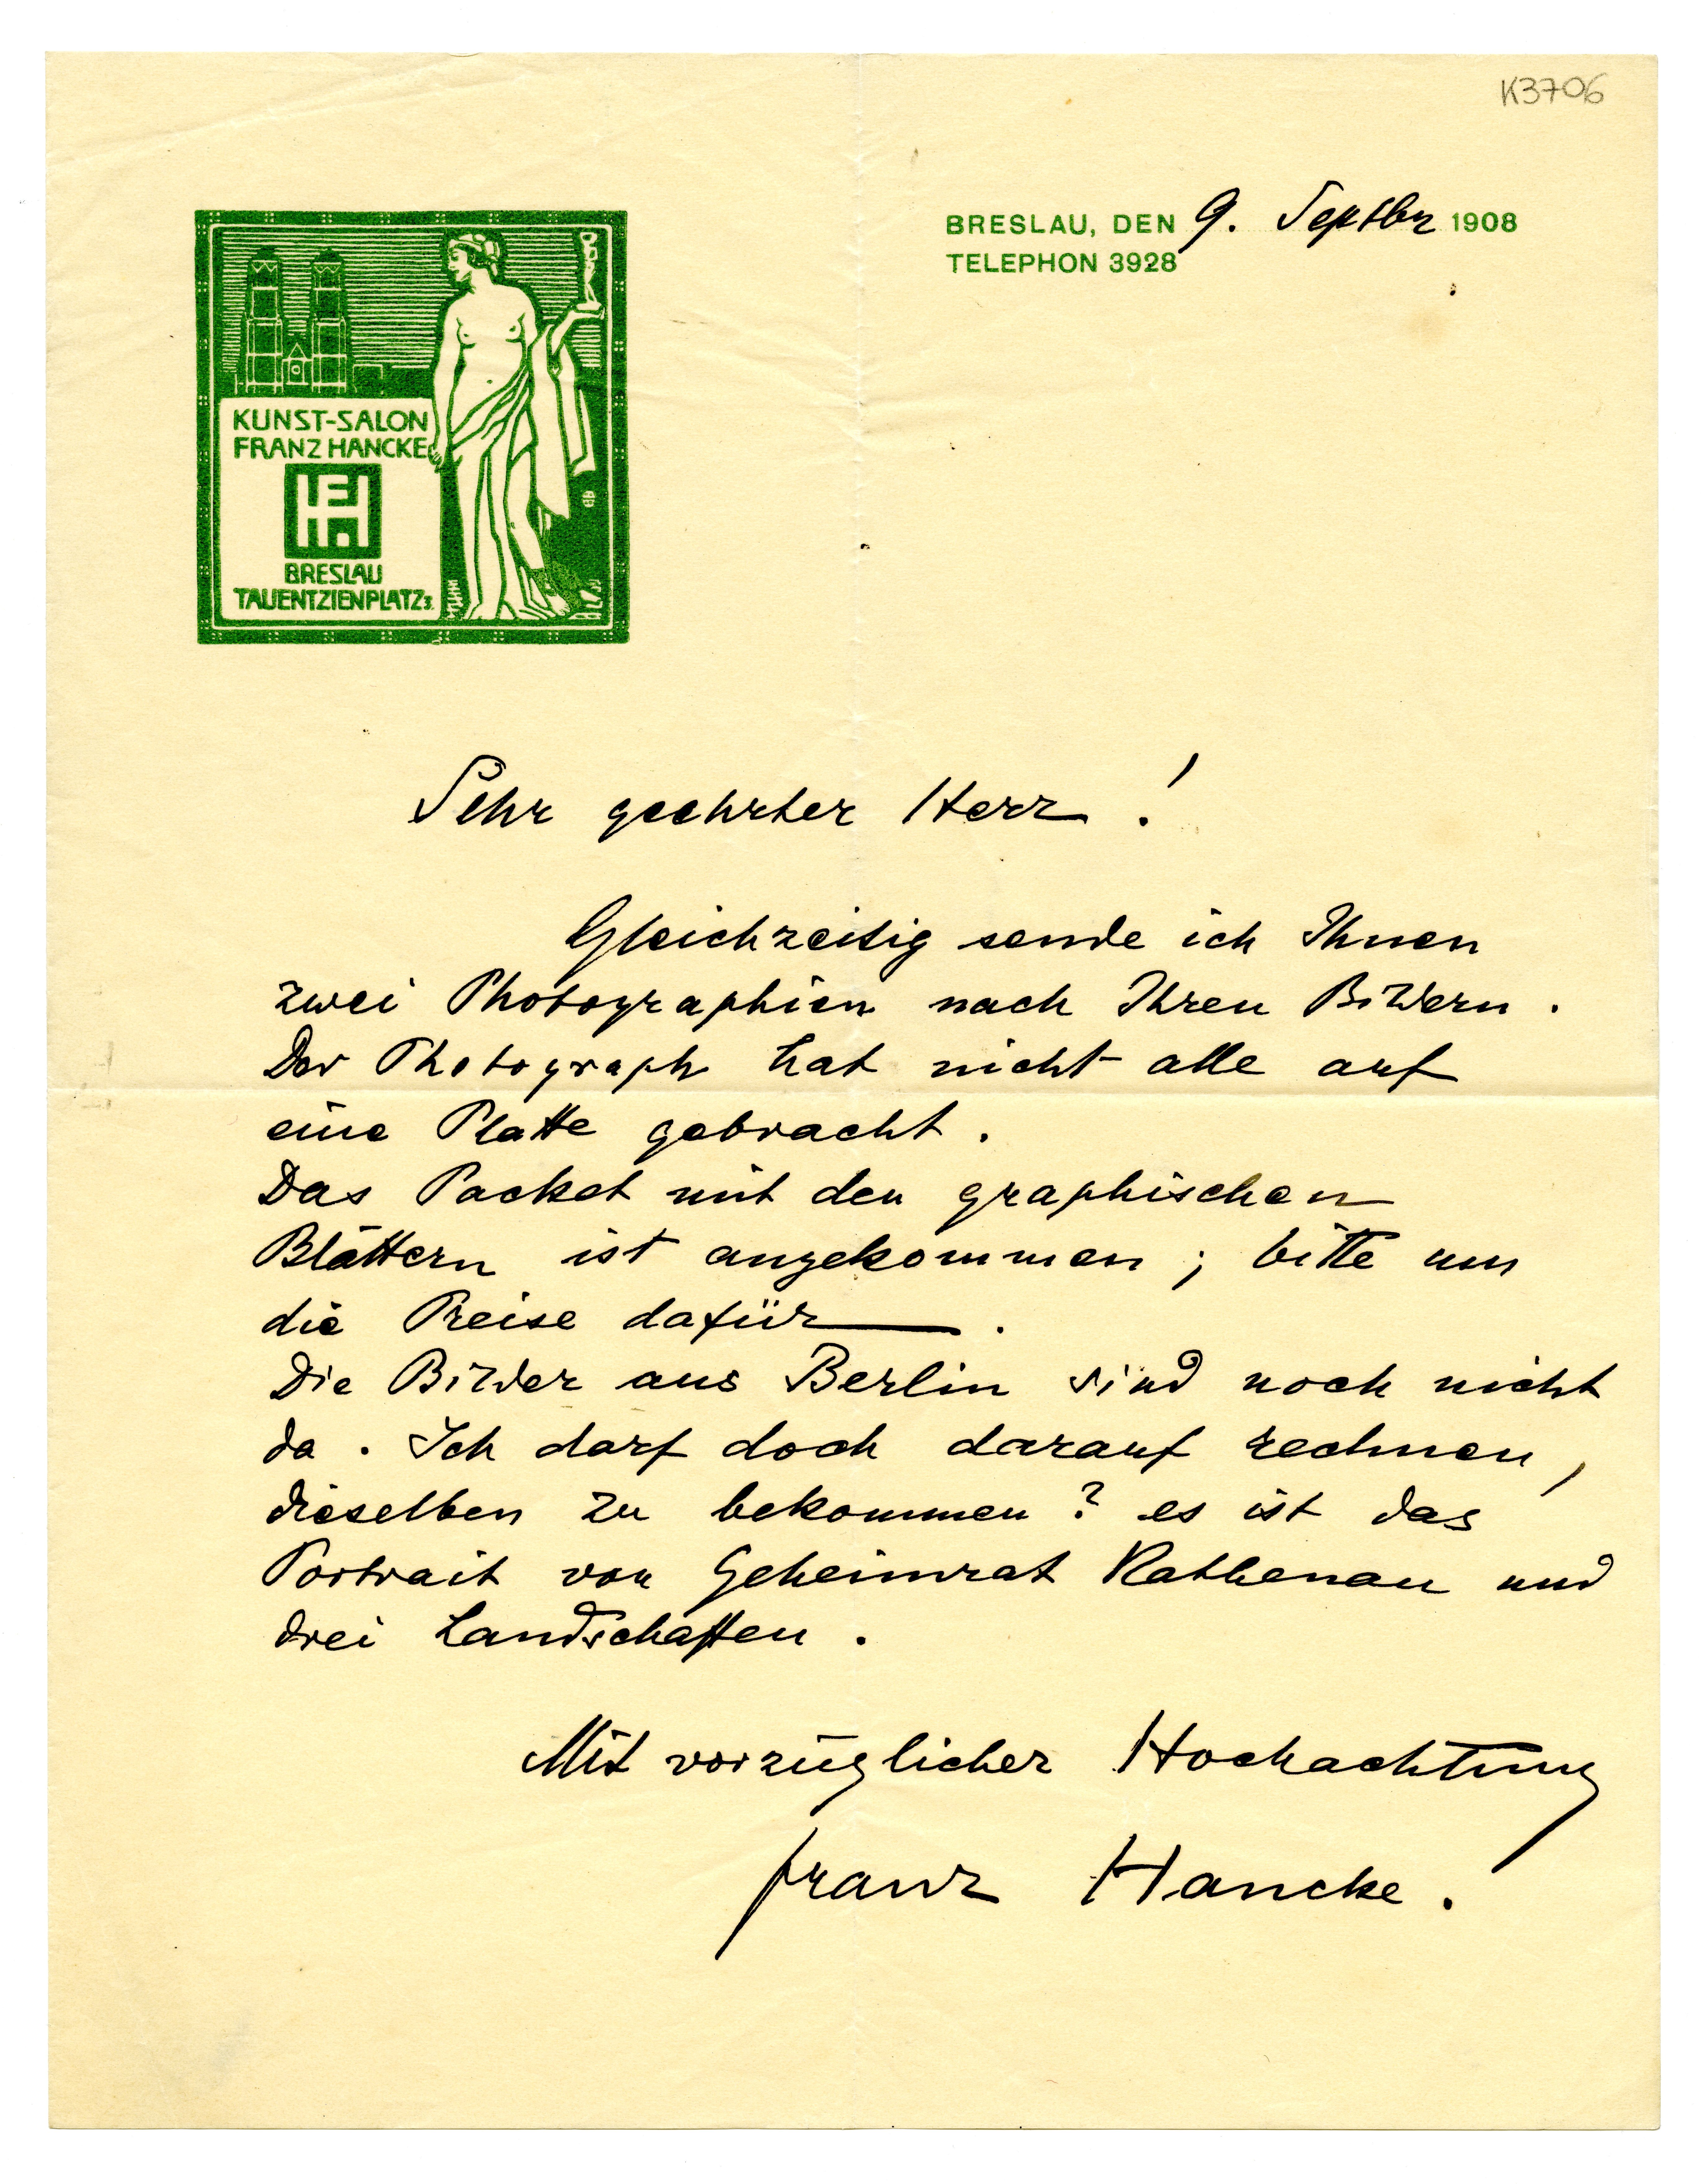 K3706
BRESLAU, DEN 9. Septbr 1908
TELEPHON 3928
KUNST-SALON
FRANZ HANCKE
FH
BRESLAU
TAUENTZIENPLATZ
Sehr geehrter Herr !
Gleichzeitig sende ich Ihnen
zwei Photographien nach Ihren Bildern .
Der Photograph hat nicht alle auf
eine Platte gebracht .
Das Packet mit den graphischen
Blättern ist angekommen ; bitte um
die Preise dafür .
Die Bilder aus Berlin sind noch nicht
da . Ich darf doch darauf rechnen ,
dieselben zu bekommen ? es ist das
Portrait von Geheimrat Rathenau und
drei Landschaften .
Mit vorzüglicher Hochachtung
Franz Hancke .